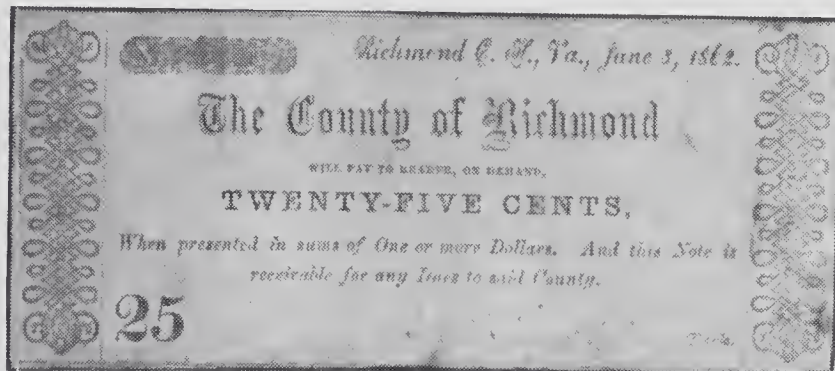 Richmond C. H., Va., June 3, 1862.
The County of Richmond
WILL PAY TO BEARER, ON DEMAND,
TWENTY-FIVE CENTS,
When presented in sums of One or more Dollars. And this Note is
receivable for any dues to said County.
25